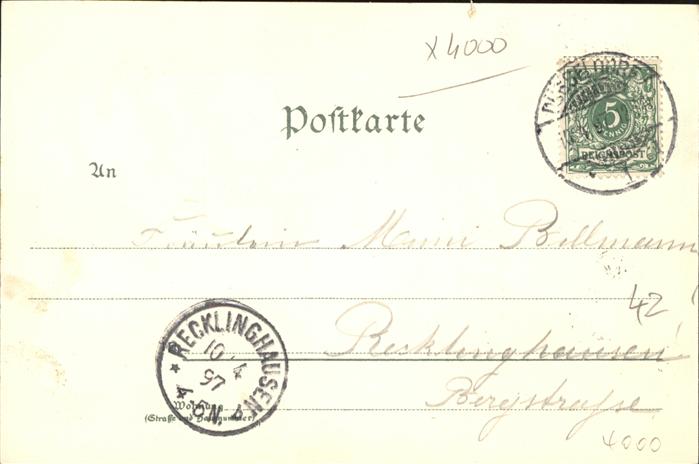 x 4000
DÜSSELDORF
5
PFENNIG
REICHSPOST
1
Postkarte
An
Fräulein Mimi Billmann
42
RECKLINGHAUSEN
10 4
97
4-5N.
Recklinghausen
Wohnung
(Straße und Hausnummer)
Bergstraße
4000